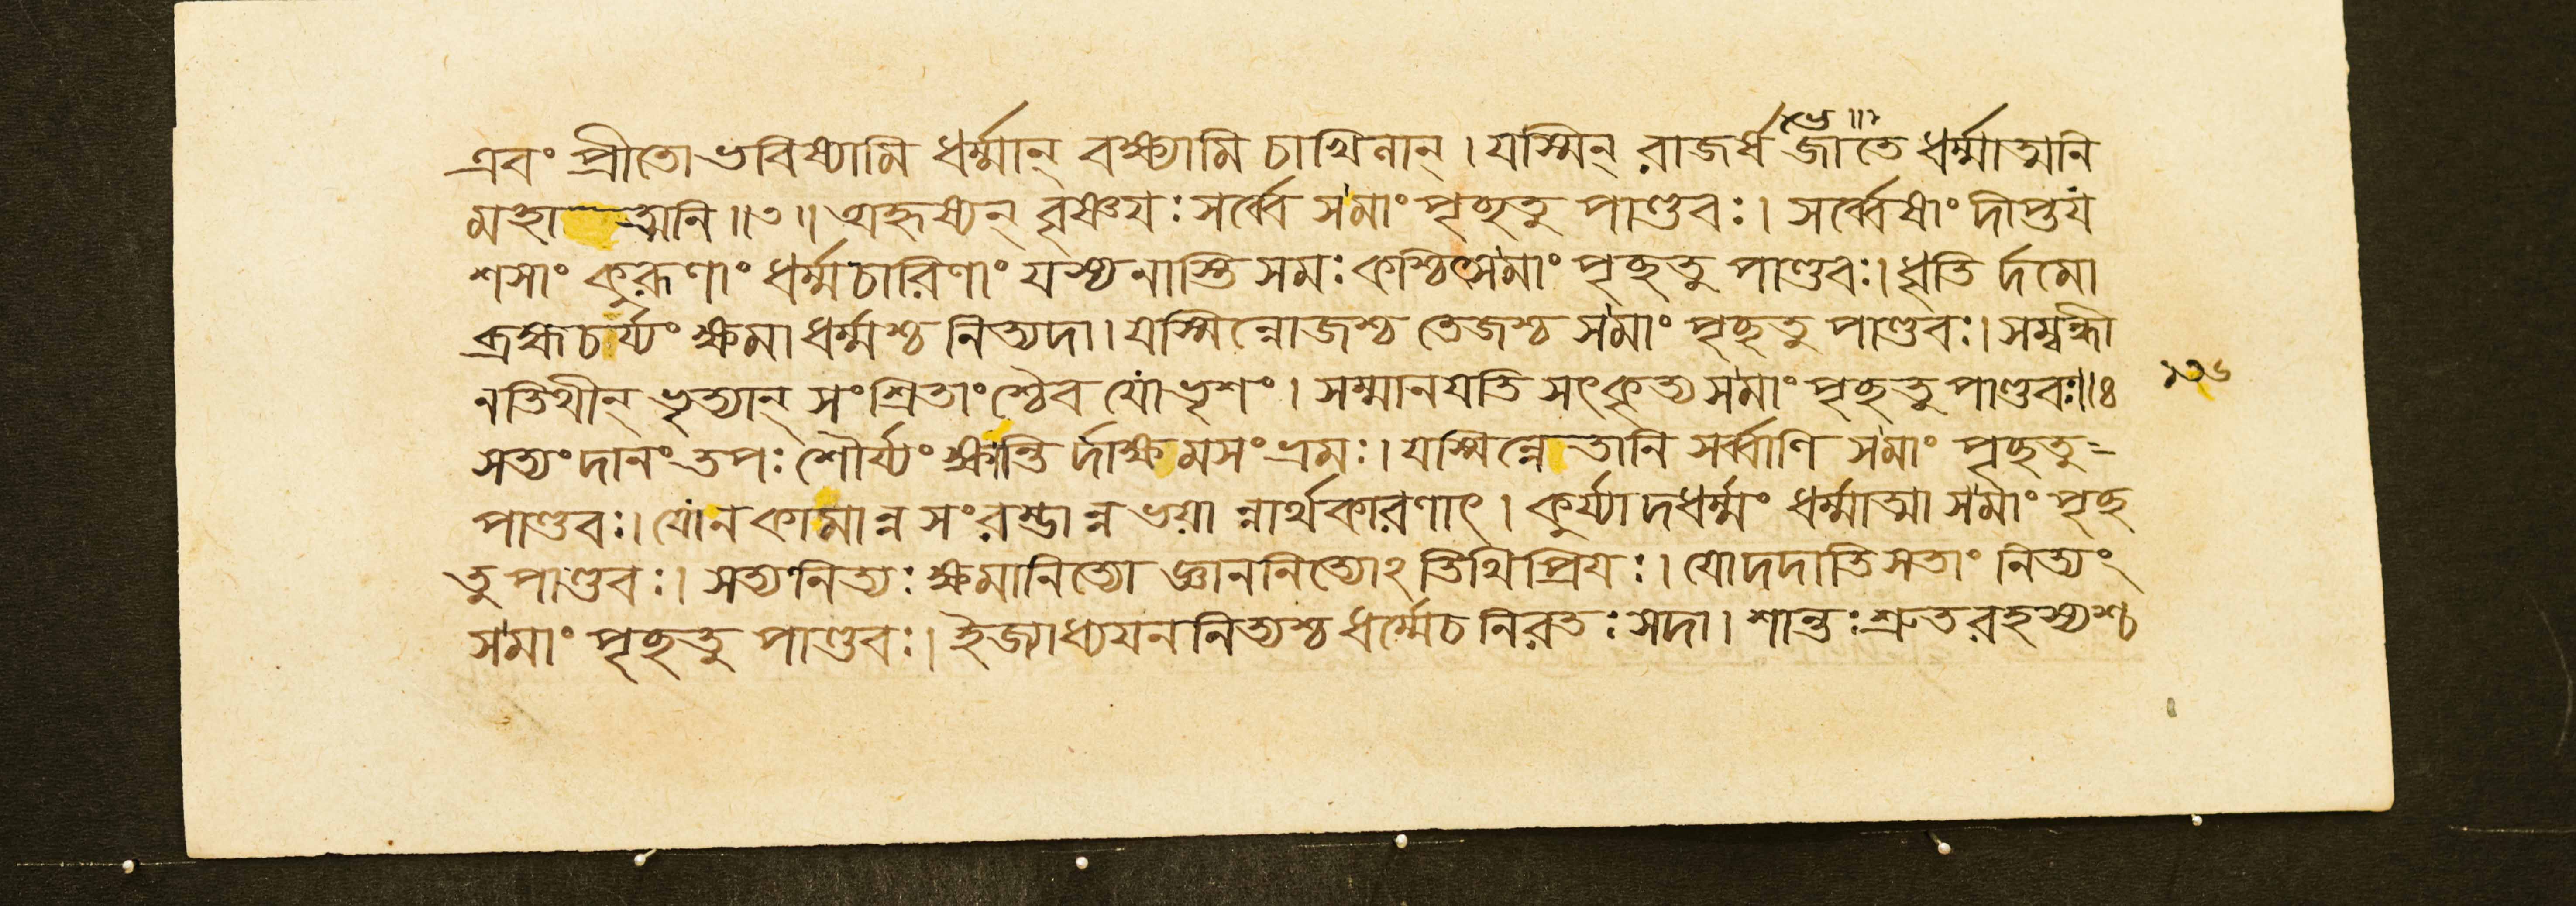 এবং প্রীতো ভবিষ্যামি ধর্ম্মান্ বক্ষ্যামি চাখিলান্। যস্মিন্ রাজর্ষভে জাতে ধর্ম্মাত্মনি
মহাত্মনি॥৩॥ অহৃষ্যন্ বৃষ্ণয়ঃ সর্ব্বে স মাং পৃচ্ছতু পাণ্ডবঃ। সর্ব্বেষাং দীপ্তয
শসাং কুরূণাং ধর্ম্মচারিণাং যস্য নাস্তি সমঃ কশ্চিৎ স মাং পৃচ্ছতু পাণ্ডবঃ। ধৃতি র্দমো
ব্রহ্মচর্য্যং ক্ষমা ধর্ম্মশ্চ নিত্যদা। যস্মিন্নোজশ্চ তেজশ্চ স মাং পৃচ্ছতু পাণ্ডবঃ। সম্বন্ধী
নতিথীন্ ভৃত্যান্ সংশ্রিতাংশ্চৈব যো ভৃশং। সম্মানযতি সৎকৃত্য স মাং পৃচ্ছতু পাণ্ডবঃ॥৪
সত্যং দানং তপঃ শৌর্য্যং ক্ষান্তি র্দাক্ষমসংভ্রমঃ। যস্মিন্নেতানি সর্ব্বাণি স মাং পৃচ্ছতু=
পাণ্ডবঃ। যো ন কামান্ন সংরম্ভান্ন ভয়া ন্নার্থকারণাৎ। কুর্য্যা দধর্ম্মং ধর্ম্মাত্মা স মাং পৃচ্ছ
তু পাণ্ডবঃ। সত্যনিত্যঃ ক্ষমানিত্যো জ্ঞাননিত্যোঽতিথিপ্রিযঃ। যো দদাতি সতাং নিত্যং
স মাং পৃচ্ছতু পাণ্ডবঃ। ইজ্যাধ্যযননিত্যশ্চ ধর্ম্মে চ নিরতঃ সদা। শান্তঃ শ্রুতরহস্যশ্চ